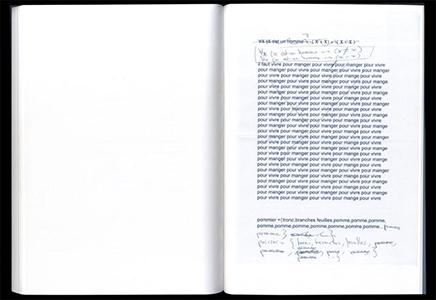 il faut vivre pour manger pour vivre pour manger pour vivre
pour manger pour vivre pour manger pour vivre pour manger
pour vivre pour manger pour vivre pour manger pour vivre
pour manger pour vivre pour manger pour vivre pour mange
pour vivre pour manger pour vivre pour manger pour vivre
pour manger pour vivre pour manger pour vivre pour manger
pour vivre pour manger pour vivre pour manger pour vivre
pour manger pour vivre pour manger pour vivre pour mange
pour vivre pour manger pour vivre pour manger pour vivre
pour manger pour vivre pour manger pour vivre pour mange
pour vivre pour manger pour vivre pour manger pour vivre
pour manger pour vivre pour manger pour vivre pour mange
pour vivre pour manger pour vivre pour manger pour vivre
pour manger pour vivre pour manger pour vivre pour mange
pour vivre pour manger pour vivre pour manger pour vivre
pour manger pour vivre pour manger pour vivre pour mange
pour vivre pour manger pour vivre pour manger pour vivre
pour manger pour vivre pour manger pour vivre pour mange
pour vivre pour manger pour vivre pour manger pour vivre
pour manger pour vivre pour manger pour vivre pour mange
pour vivre pour manger pour vivre pour manger pour vivre
pour manger pour vivre pour manger pour vivre pour mange
pour vivre pour manger pour vivre pour manger pour vivre
pour manger pour vivre pour manger pour vivre pour mange
pour vivre pour manger pour vivre pour manger pour vivre
pommier ={tronc,branches feuilles,pomme,pomme,
pomme,pomme,pomme,pomme,pomme,pomme,pomme, pomme